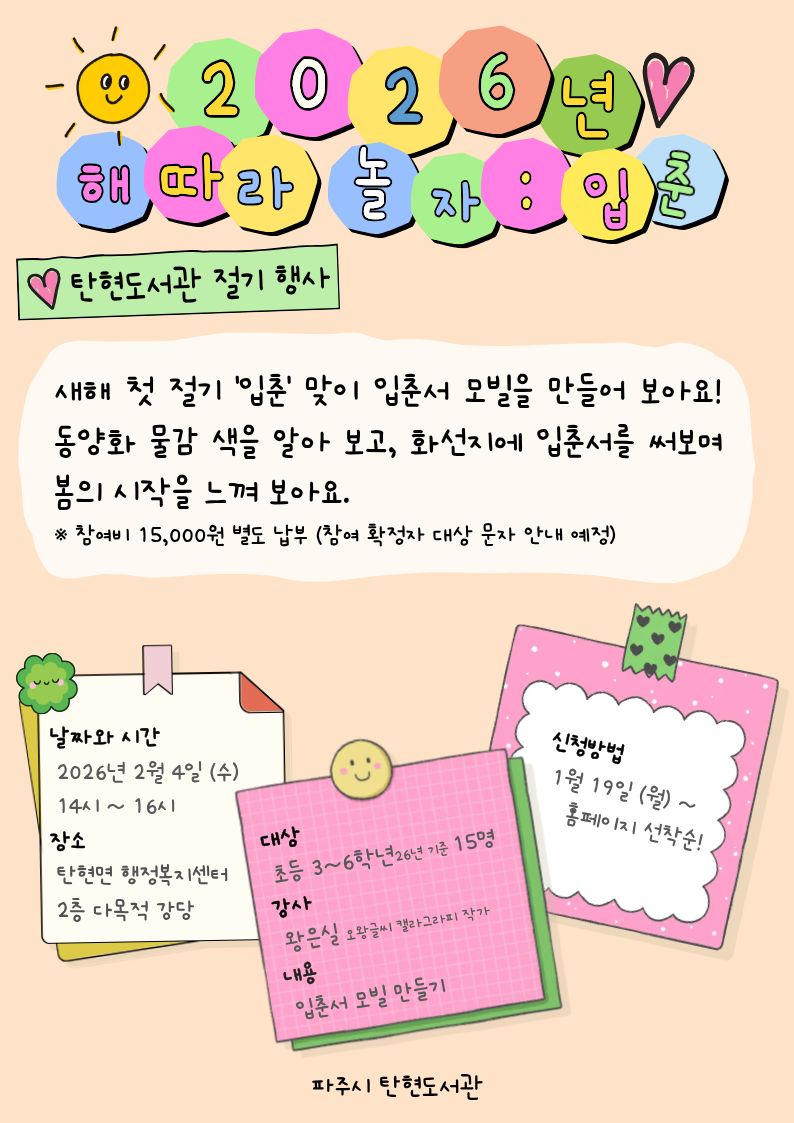 2026년
해 따라 놀자 : 입춘
탄현도서관 절기 행사
새해 첫 절기 '입춘' 맞이 입춘서 모빌을 만들어 보아요!
동양화 물감 색을 알아 보고, 화선지에 입춘서를 써보며
봄의 시작을 느껴 보아요.
※ 참여비 15,000원 별도 납부 (참여 확정자 대상 문자 안내 예정)
날짜와 시간
2026년 2월 4일 (수)
14시 ~ 16시
장소
탄현면 행정복지센터
2층 다목적 강당
대상
초등 3~6학년26년 기준 15명
강사
왕은실 오왕글씨 캘라그라피 작가
내용
입춘서 모빌 만들기
신청방법
1월 19일 (월) ~
홈페이지 선착순!
파주시 탄현도서관